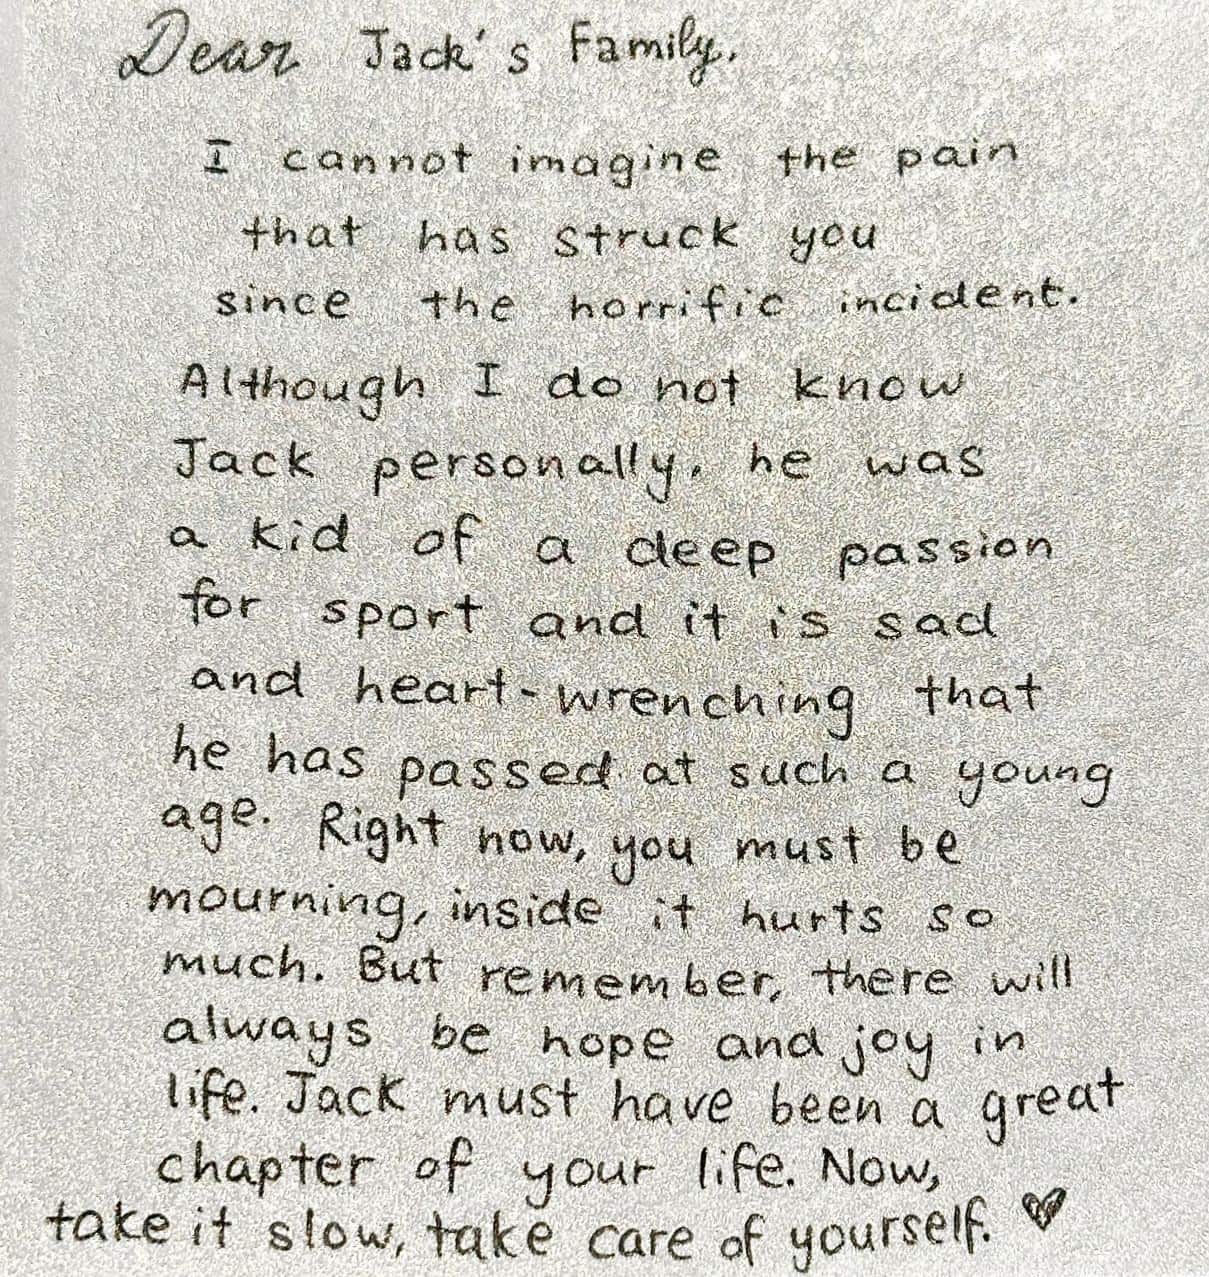 Dear Jack's Family,
I cannot imagine the pain
that has struck you
since the horrific incident.
Although I do not know
Jack personally, he was
a kid of a deep passion
for sport and it is sad
and heart-wrenching that
he has passed at such a young
age. Right now, you must be
mourning, inside it hurts so
much. But remember, there will
always be hope and joy in
life. Jack must have been a great
chapter of your life. Now,
take it slow, take care of yourself.